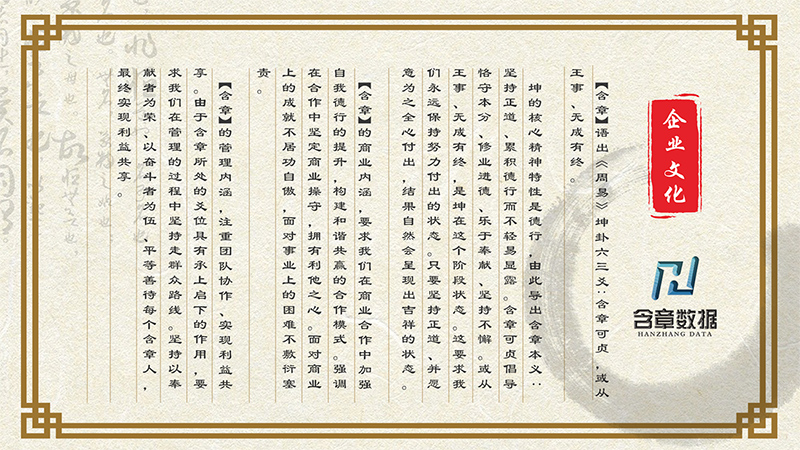 企业文化
含章数据
HANZHANG DATA
【含章】语出《周易》坤卦六三爻：含章可贞，或从
王事、无成有终。
坤的核心精神特性是德行，由此导出含章本义：
坚持正道、累积德行而不轻易显露。含章可贞倡导
恪守本分、修业进德、乐于奉献、坚持不懈。或从
王事、无成有终，是坤在这个阶段状态。这要求我
们永远保持努力付出的状态。只要坚持正道、并愿
意为之全心付出，结果自然会呈现出吉祥的状态。
【含章】的商业内涵，要求我们在商业合作中加强
自我德行的提升，构建和谐共赢的合作模式。强调
在合作中坚定商业操守，拥有利他之心。面对商业
上的成就不居功自傲，面对事业上的困难不敷衍塞
责。
【含章】的管理内涵，注重团队协作、实现利益共
享。由于含章所处的爻位具有承上启下的作用，要
求我们在管理的过程中坚持走群众路线。坚持以奉
献者为荣、以奋斗者为伍、平等善待每个含章人，
最终实现利益共享。